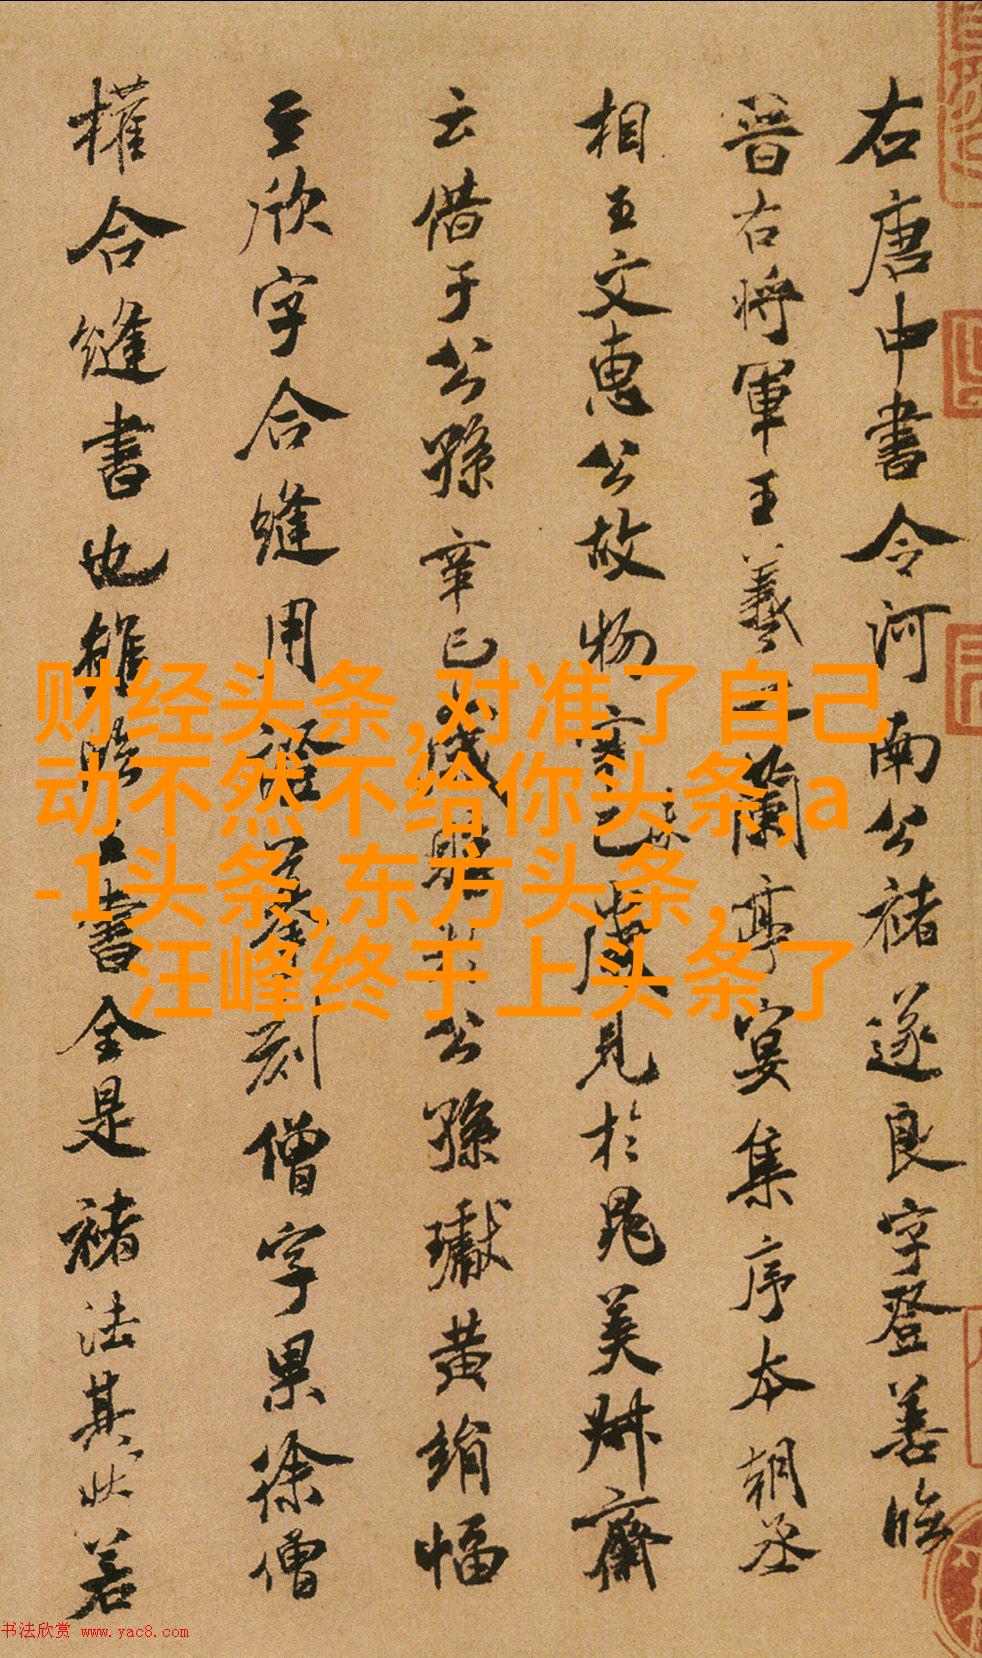 右唐中書令河南公褚遂良字登善臨
晉右將軍王羲之蘭亭宴集序本朝丞
相王文惠公故物辛未歲見於晁美叔齋
云借于公孫辛巳歲購于公孫瓛黃絹幅
至欣字合縫用證摹刻僧字果徐僧
權合縫書也雖臨王書全是褚法其狀若
财经头条,对准了自己
动不然不给你头条,a
-1头条,东方头条,
汪峰终于上头条了
书法欣赏 www.yac8.com